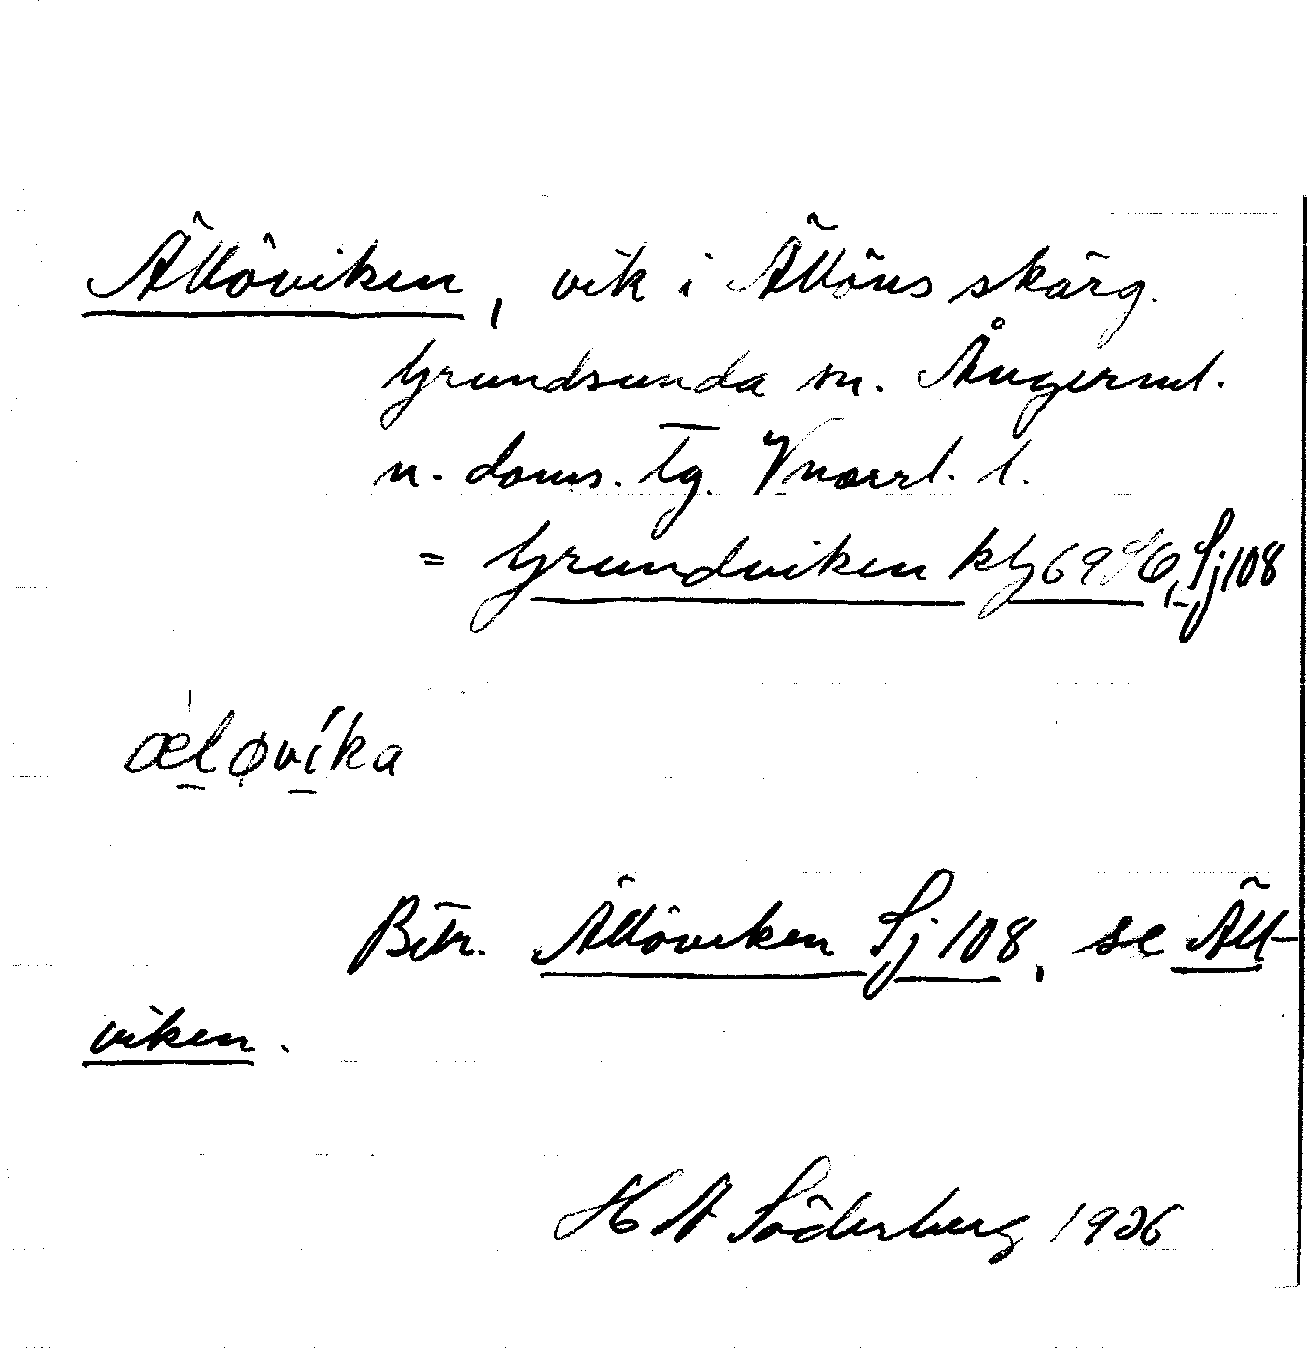 Ällöviken, vik i Ällöns skärg.
Grundsunda sn. Ångerml.
n. doms. Tg. Vnorrl. l.
= Grundviken kbl 69 SO, Sj 108
æløvíka
Betr. Ällöviken Sj 108, se Äll-
viken.
H A Söderberg 1926